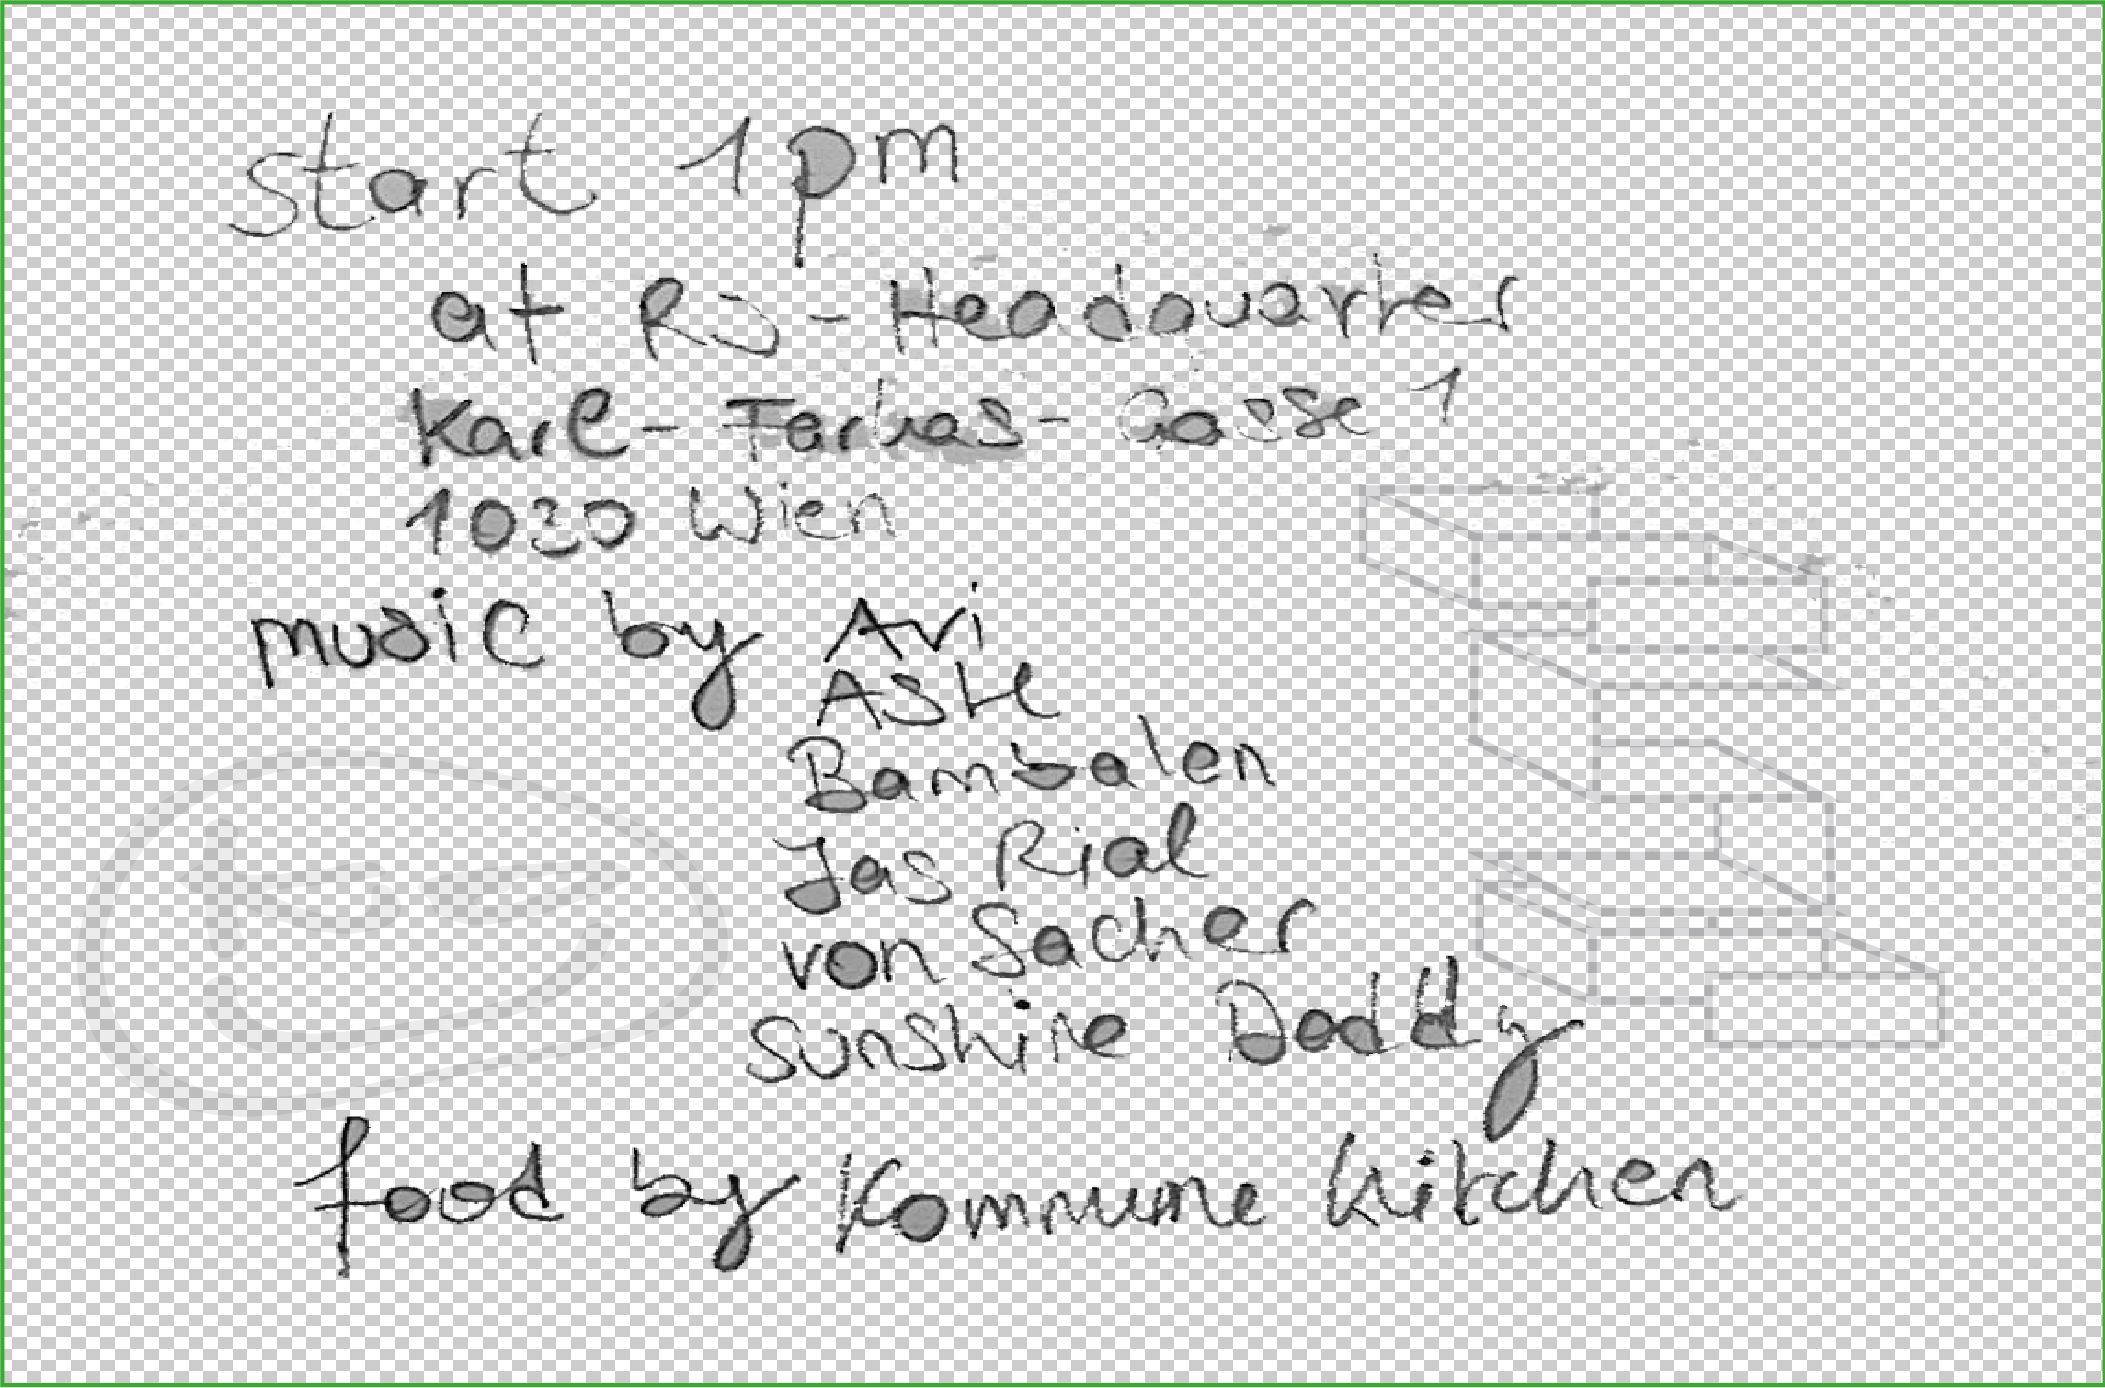 start 1pm
at RJ-Headquarter
Karl-Farkas-Gasse 1
1030 Wien
music by Avi
ASH
Bambalen
Jas Rial
von Sacher
sunshine Daddy
food by Kommune Kitchen